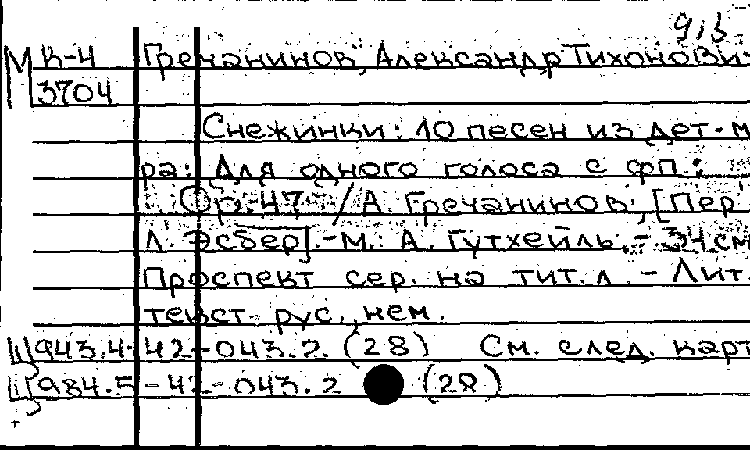 913
М К-4 Гречанинов, Александр Тихонови
3704
Снежинки: 10 песен из дет. м
ра: Для одного голоса с фп.;
Ор. 47 / А. Гречанинов; [Пер
Л. Эсбер]. - М.: А. Гутхейль. - 34 см
Проспект сер. на тит. л. - Лит.
текст рус., нем.
Ш 943.4-42-043.2 (28) См. след. карт
Ш 984.5-42-043.2 (28)